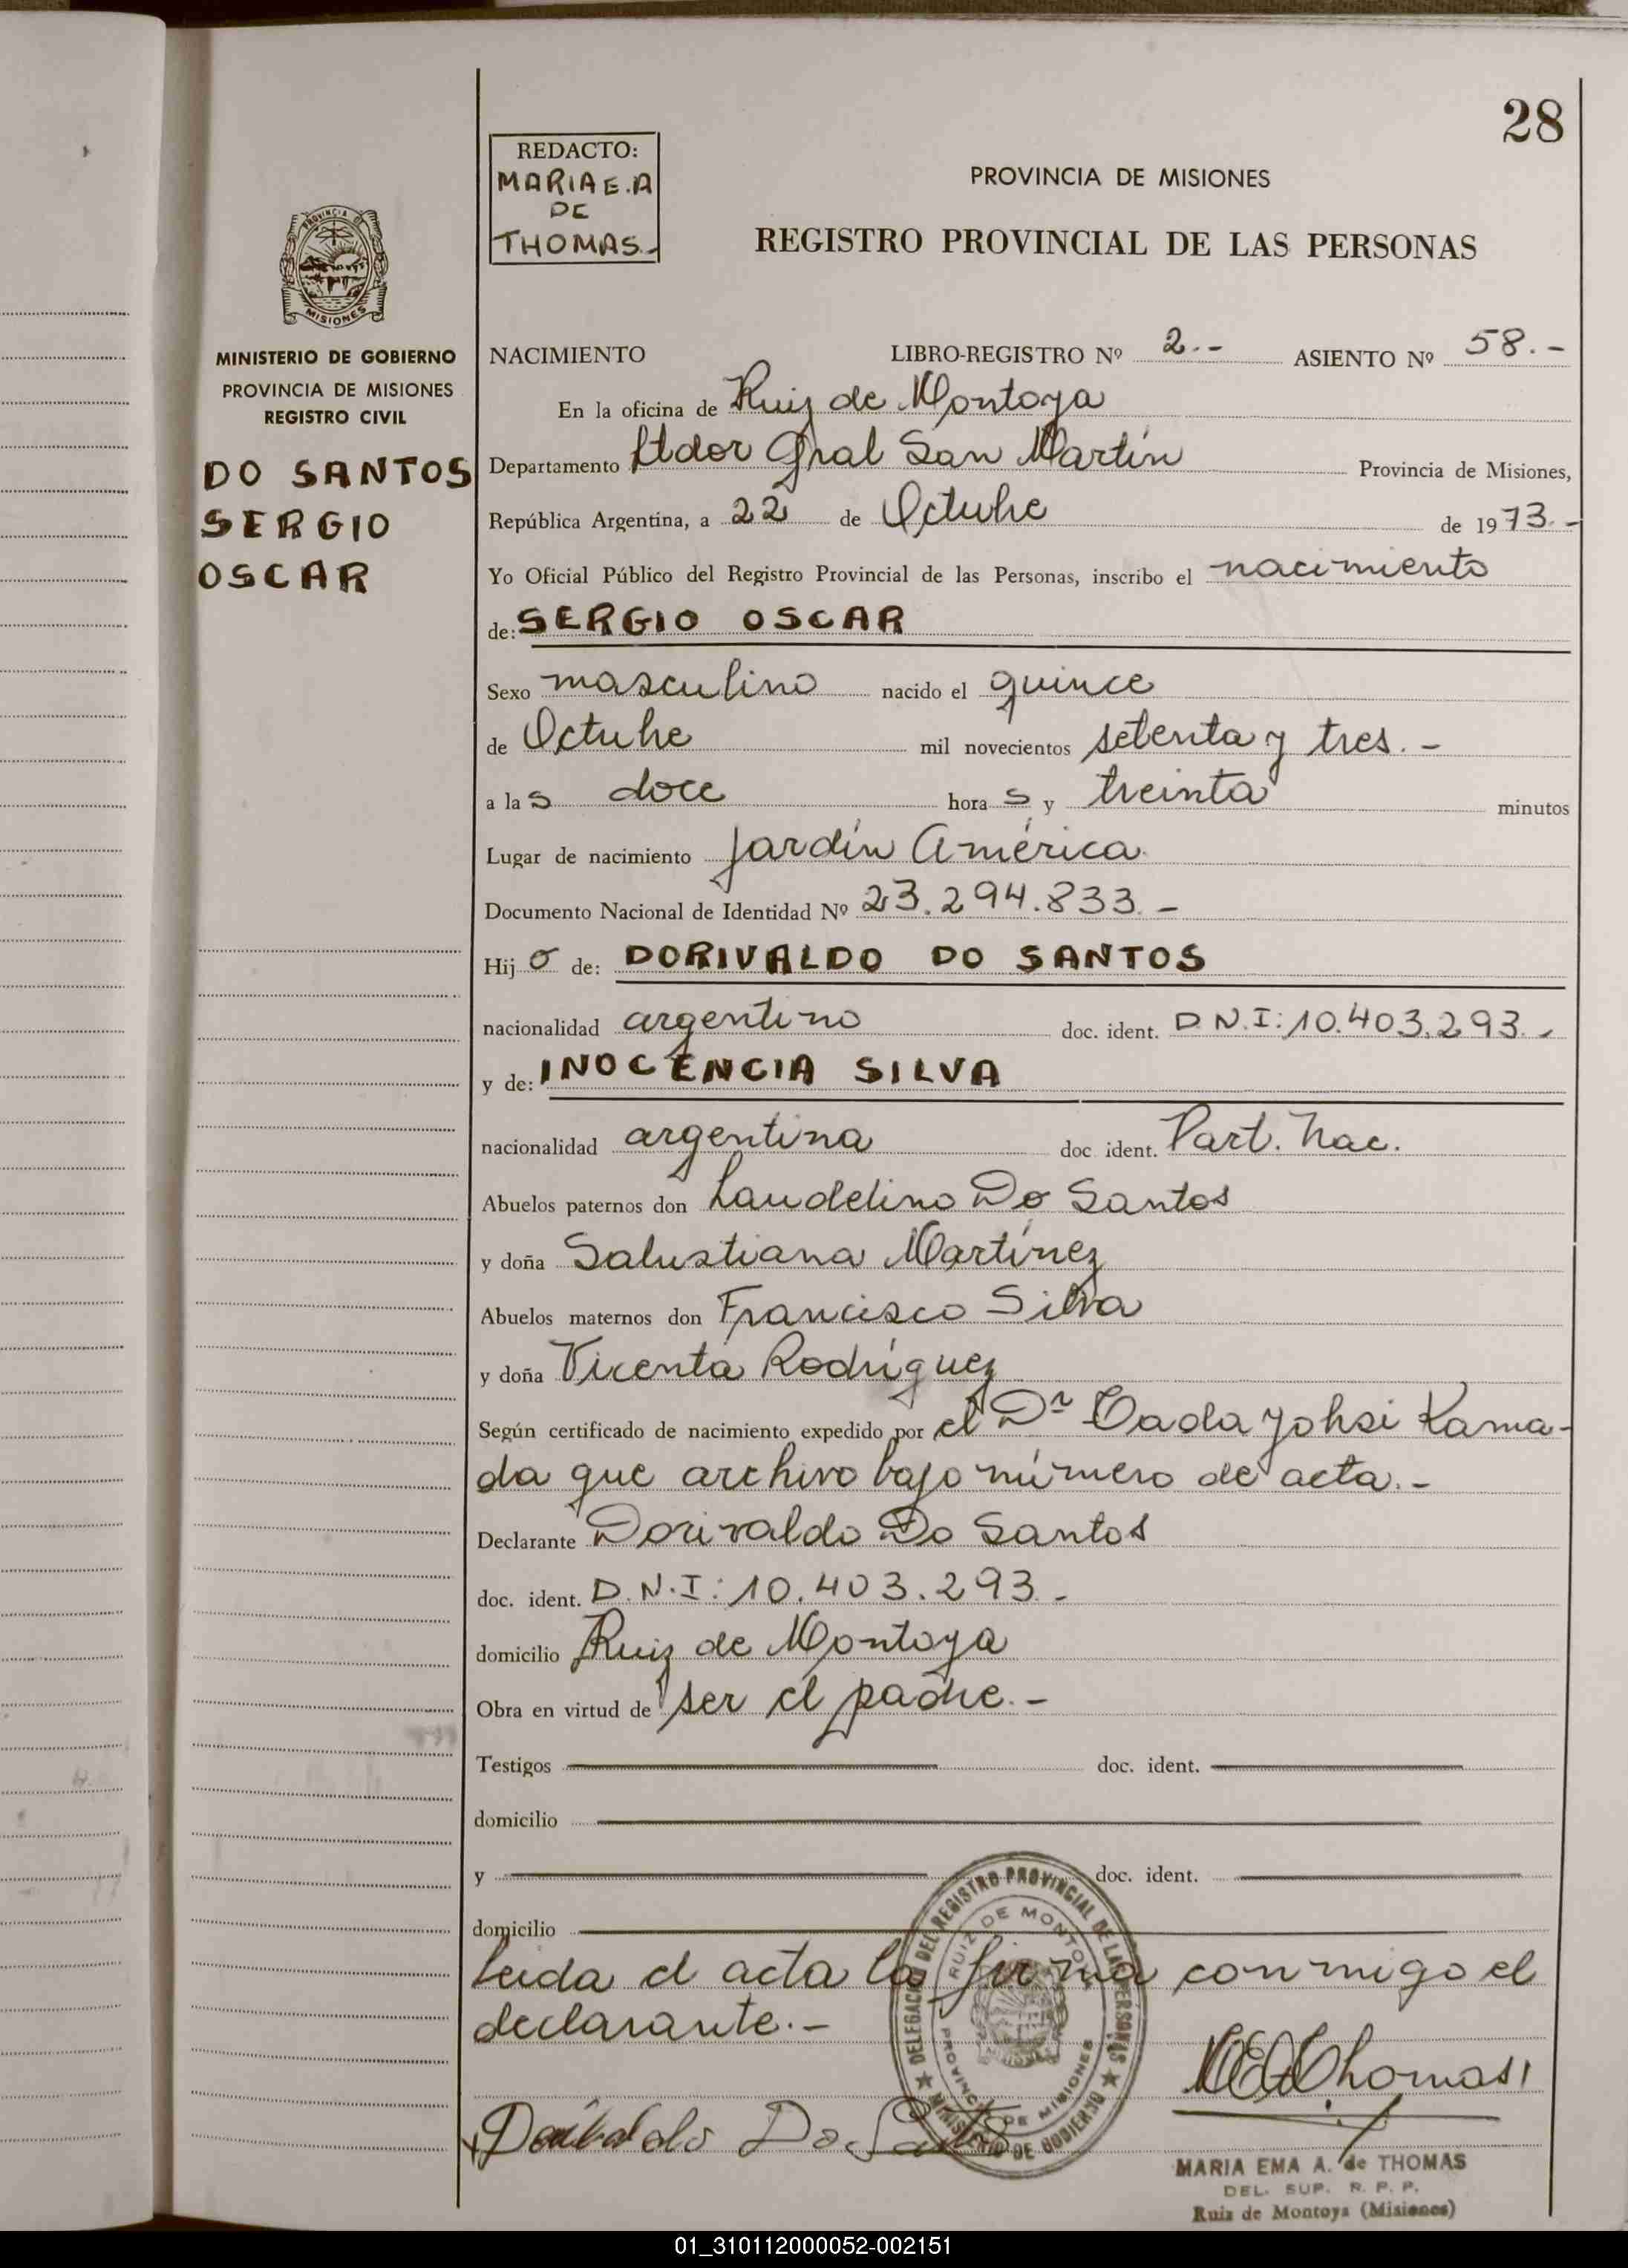 28
REDACTO:
MARIA E. A
DE
THOMAS.-
PROVINCIA DE MISIONES
REGISTRO PROVINCIAL DE LAS PERSONAS
PROVINCIA DE
MISIONES
MINISTERIO DE GOBIERNO
PROVINCIA DE MISIONES
REGISTRO CIVIL
DO SANTOS
SERGIO
OSCAR
NACIMIENTO LIBRO-REGISTRO Nº 2.- ASIENTO Nº 58.-
En la oficina de Ruiz de Montoya
Departamento Ltdor Gral San Martín Provincia de Misiones,
República Argentina, a 22 de Octubre de 1973.-
Yo Oficial Público del Registro Provincial de las Personas, inscribo el nacimiento
de: SERGIO OSCAR
Sexo masculino nacido el quince
de Octubre mil novecientos setenta y tres.-
a las doce horas y treinta minutos
Lugar de nacimiento Jardín América
Documento Nacional de Identidad Nº 23.294.833.-
Hijo de: DORIVALDO DO SANTOS
nacionalidad argentino doc. ident. D.N.I: 10.403.293.-
y de: INOCENCIA SILVA
nacionalidad argentina doc ident. Part. Nac.
Abuelos paternos don Laudelino Do Santos
y doña Salustiana Martínez
Abuelos maternos don Francisco Silva
y doña Vicenta Rodríguez
Según certificado de nacimiento expedido por el Dr Tada Yohsi Kama-
da que archivo bajo número de acta.-
Declarante Dorivaldo Do Santos
doc. ident. D.N.I: 10.403.293.-
domicilio Ruiz de Montoya
Obra en virtud de ser el padre.-
Testigos doc. ident.
domicilio
y doc. ident.
domicilio
Leida el acta la firma conmigo el
declarante.-
DELEGACIÓN DEL REGISTRO PROVINCIAL DE LAS PERSONAS
RUIZ DE MONTOYA
PROVINCIA DE MISIONES
MINISTERIO DE GOBIERNO
MEAThomas
Do Santos
MARIA EMA A. de THOMAS
DEL. SUP. R. P. P.
Ruiz de Montoya (Misiones)
01_310112000052-002151